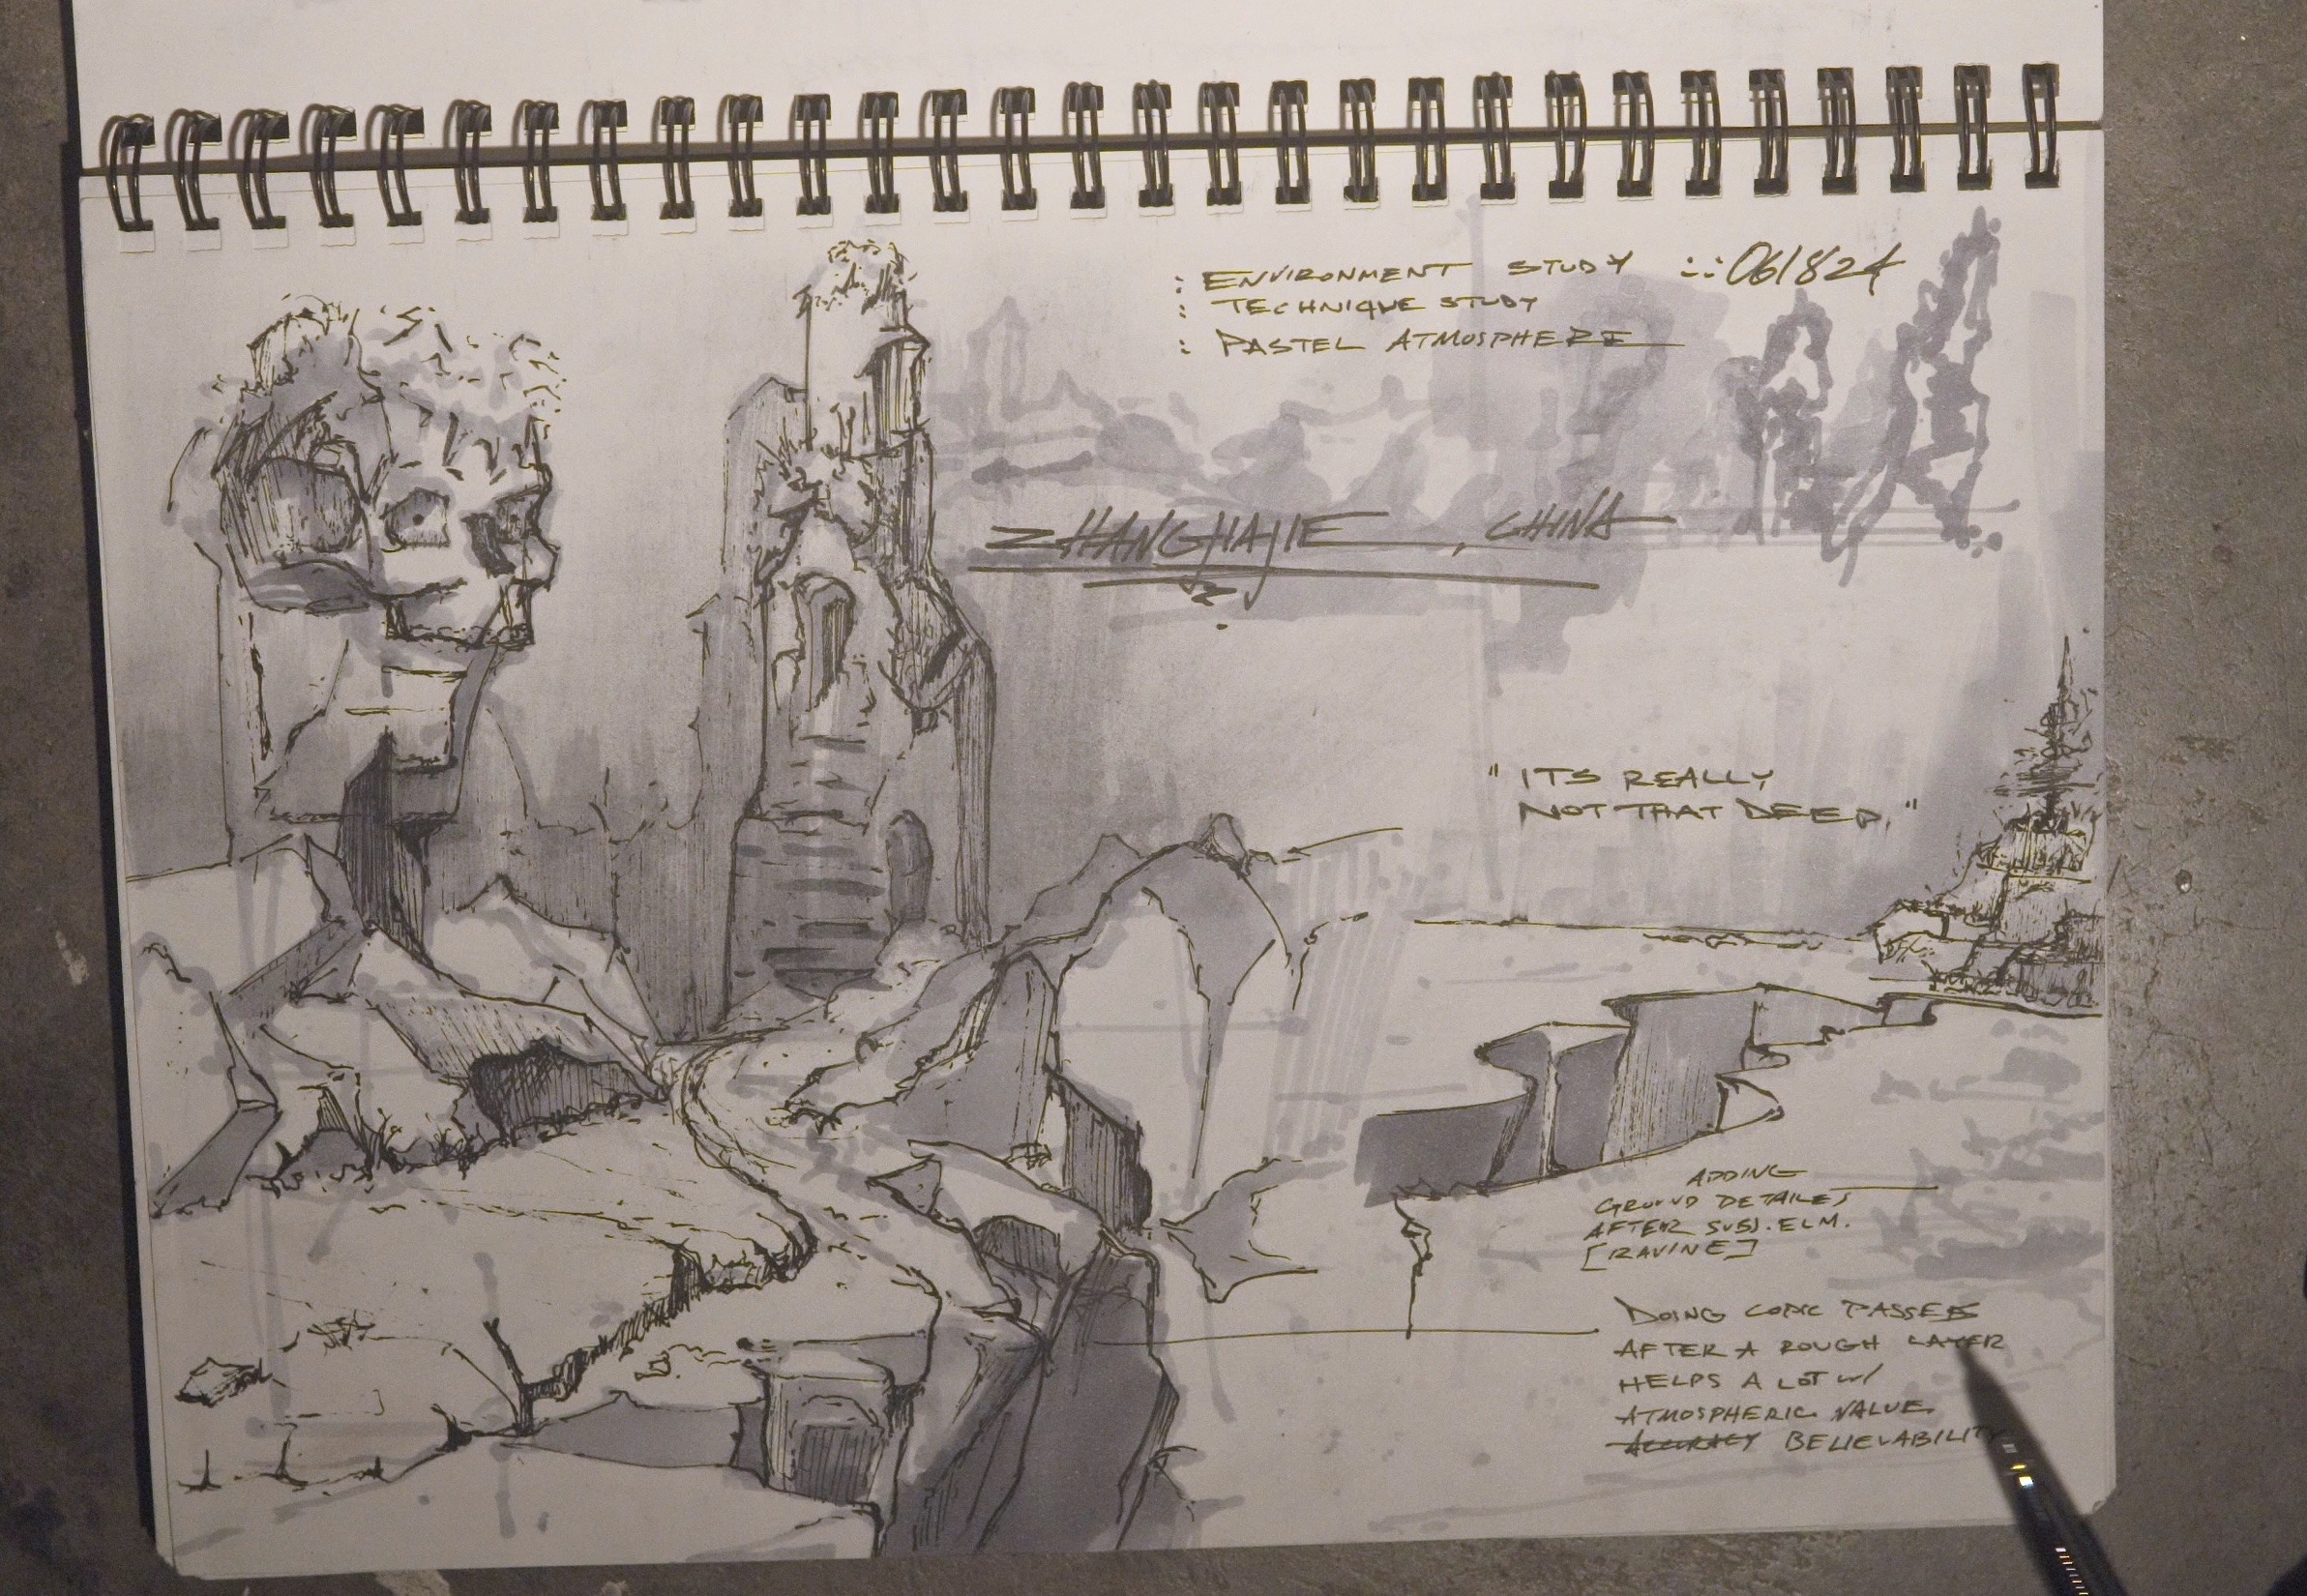 : ENVIRONMENT STUDY ::061824
: TECHNIQUE STUDY
: PASTEL ATMOSPHERE
ZHANGJIAJIE, CHINA
"ITS REALLY
NOT THAT DEEP."
ADDING
GROUND DETAILES
AFTER SUBJ. ELM.
[RAVINE]
DOING COPIC PASSES
AFTER A ROUGH LAYER
HELPS A LOT W/
ATMOSPHERIC VALUE
ACCURACY BELIEVABILITY